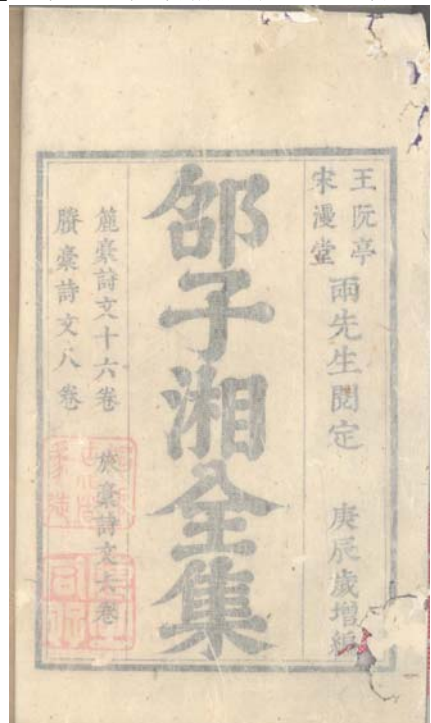 王阮亭
宋漫堂
兩先生閱定
庚辰歲增編
邵子湘全集
麓稾詩文十六卷
旅稾詩文六卷
賸稾詩文八卷